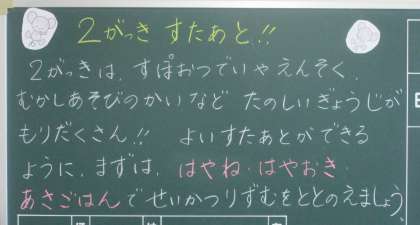 2がっき すたあと!!
2がっきは、すぽおつでいや えんそく、
むかしあそびのかいなど たのしいぎょうじが
もりだくさん!! よいすたあとができる
ように、まずは、はやね・はやおき・
あさごはんでせいかつりずむをととのえましょう。